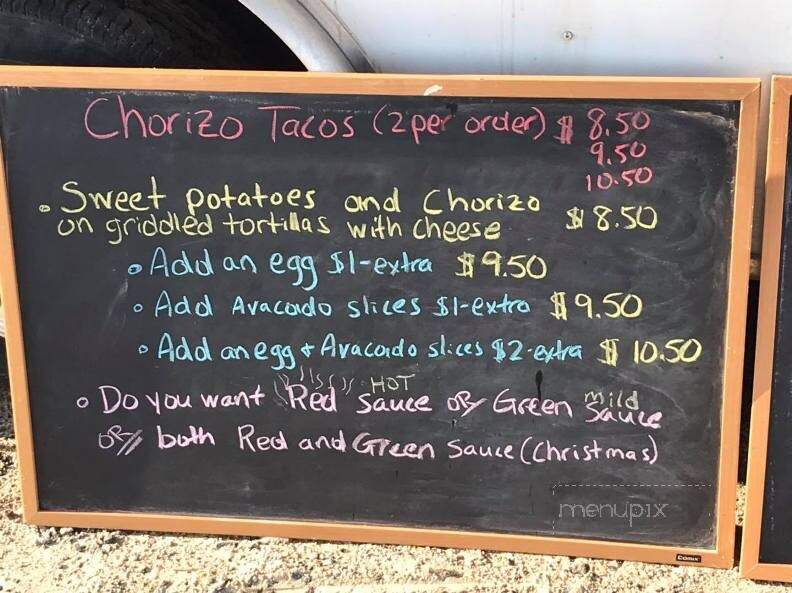 Chorizo Tacos (2 per order) $ 8.50
9.50
10.50
• Sweet potatoes and Chorizo
on griddled tortillas with cheese $ 8.50
• Add an egg $1-extra $9.50
• Add Avacado slices $1-extra $9.50
• Add an egg + Avacado slices $2-extra $ 10.50
HOT mild
• Do you want Red sauce OR Green Sauce
OR both Red and Green Sauce (Christmas)
menupix